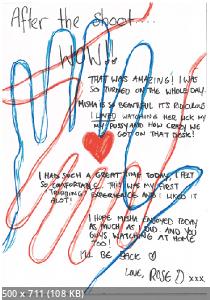 After the Shoot....
WOW!!
THAT WAS AMAZING! I WAS
SO TURNED ON THE WHOLE DAY.
MISHA IS SO BEAUTIFUL ITS RIDICULOUS
I LOVED WATCHING HER LICK MY
MY PUSSY AND HOW CRAZY WE
GOT ON THAT DESK!
I HAD SUCH A GREAT TIME TODAY, I FELT
SO COMFORTABLE. THIS WAS MY FIRST
EXPERIENCE AND I LIKED IT
ALOT!
I HOPE MISHA ENJOYED TODAY
AS MUCH AS I DID. AND YOU
GUYS WATCHING AT HOME
TOO!
I'LL BE BACK
LOVE, ROSE D xxx
500 x 711 (108 KB)